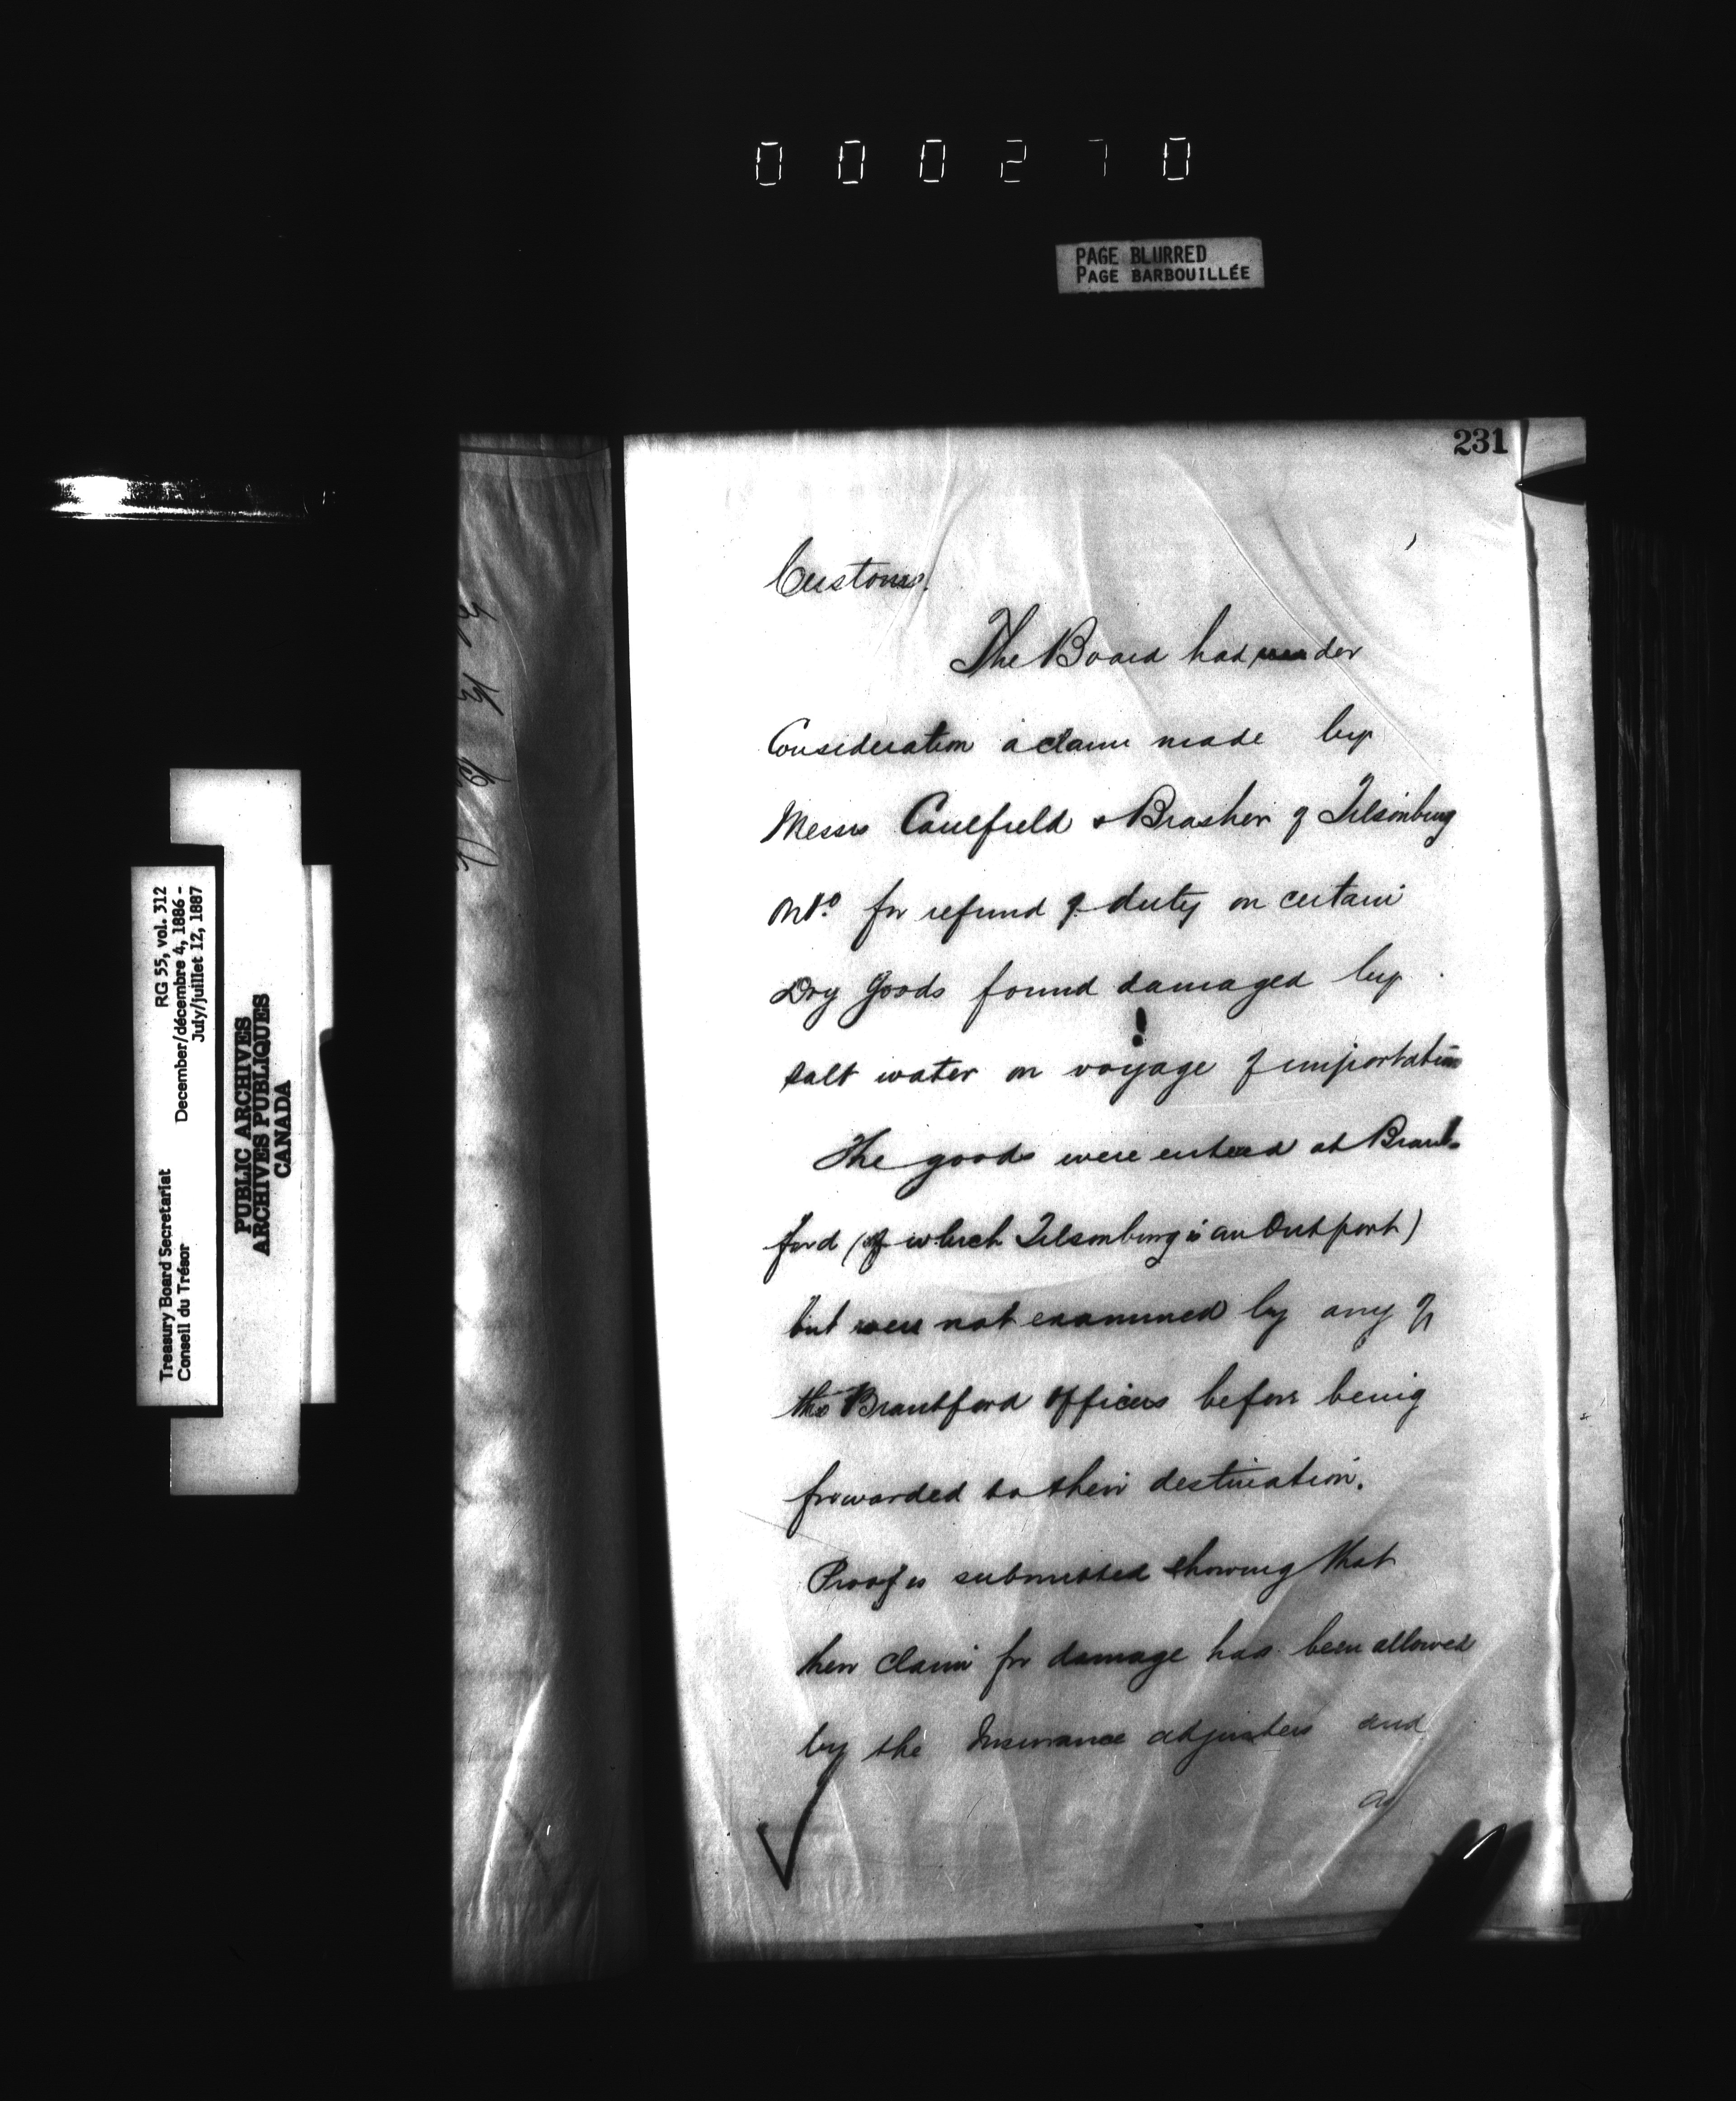 000270
PAGE BLURRED
PAGE BARBOUILLÉE
231
Customs.
The Board had under
Consideration a claim made by
Messrs Caulfield & Brasher of Tilsonburg
Ont.o for refund of duty on certain
Dry Goods found damaged by
salt water on voyage of importation
The goods were entered at Brant-
ford (of which Tilsonburg is an Outport)
but were not examined by any of
the Brantford Officers before being
forwarded to their destination.
Proof is submitted showing that
their claim for damage has been allowed
by the Insurance adjusters and
as
RG 55, vol. 312
December/décembre 4, 1886 -
July/juillet 12, 1887
Treasury Board Secretariat
Conseil du Trésor
PUBLIC ARCHIVES
ARCHIVES PUBLIQUES
CANADA